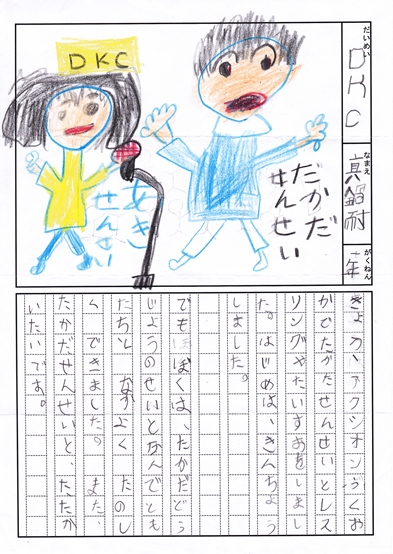 だいめい
DKC
なまえ
真鍋耐
がくねん
年
DKC
だかだ
せんせい
あき
せんせい
きょう、アクシオンふくお
かでたかだせんせいとレス
リングやたいすおをしまし
た。はじめは、きんちょう
しました。
でもぼくは、たかだどう
じょうのせいとなんでとも
だちと なかよく たのし
くできました。また、
たかだせんせいと、たたか
いたいです。